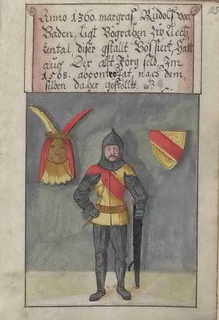 Anno 1360. margraf Rudolf von
Baden, ligt Begraben zů liech
tental diser gstalt Bossiert, hatt
auß Der alt Jörg
1568. abcontrafat, nach dem
selben da her gestelt.